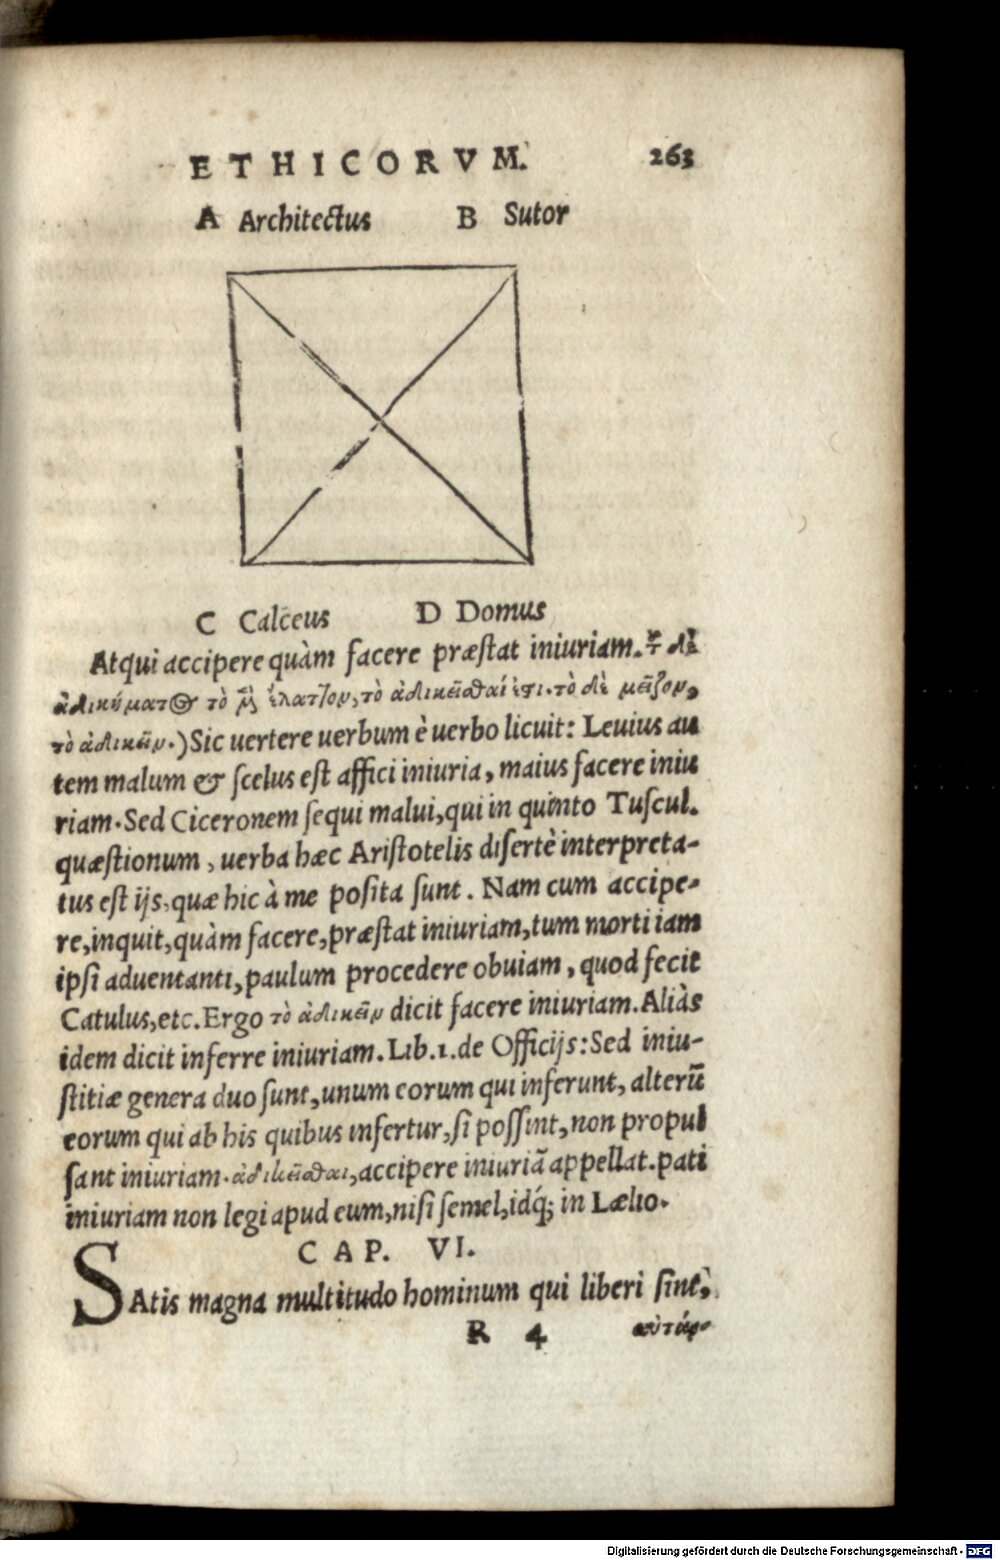 ETHICORVM. 263
A Architectus B Sutor
C Calceus D Domus
Atqui accipere quàm facere præstat iniuriam. τ δὲ
ἀδικήματ&ος τὸ μὲν ἔλαττον, τὸ ἀδικεῖσθαί ἐστι. τὸ δὲ μεῖζον,
τὸ ἀδικεῖν.) Sic uertere uerbum è uerbo licuit: Leuius au
tem malum & scelus est affici iniuria, maius facere iniu
riam. Sed Ciceronem sequi malui, qui in quinto Tuscul.
quæstionum, uerba hæc Aristotelis disertè interpreta-
tus est ijs, quæ hic à me posita sunt. Nam cum accipe-
re, inquit, quàm facere, præstat iniuriam, tum morti iam
ipsi aduentanti, paulum procedere obuiam, quod fecit
Catulus, etc. Ergo τὸ ἀδικεῖν dicit facere iniuriam. Aliàs
idem dicit inferre iniuriam. Lib. 1. de Officijs: Sed iniu-
stitiæ genera duo sunt, unum eorum qui inferunt, alterū
eorum qui ab his quibus infertur, si possint, non propul
sant iniuriam. ἀδικεῖσθαι, accipere iniuriā appellat. pati
iniuriam non legi apud eum, nisi semel, idq́; in Lælio.
CAP. VI.
SAtis magna multitudo hominum qui liberi sint,
R 4 αὐτάρ-
Digitalisierung gefördert durch die Deutsche Forschungsgemeinschaft - DFG